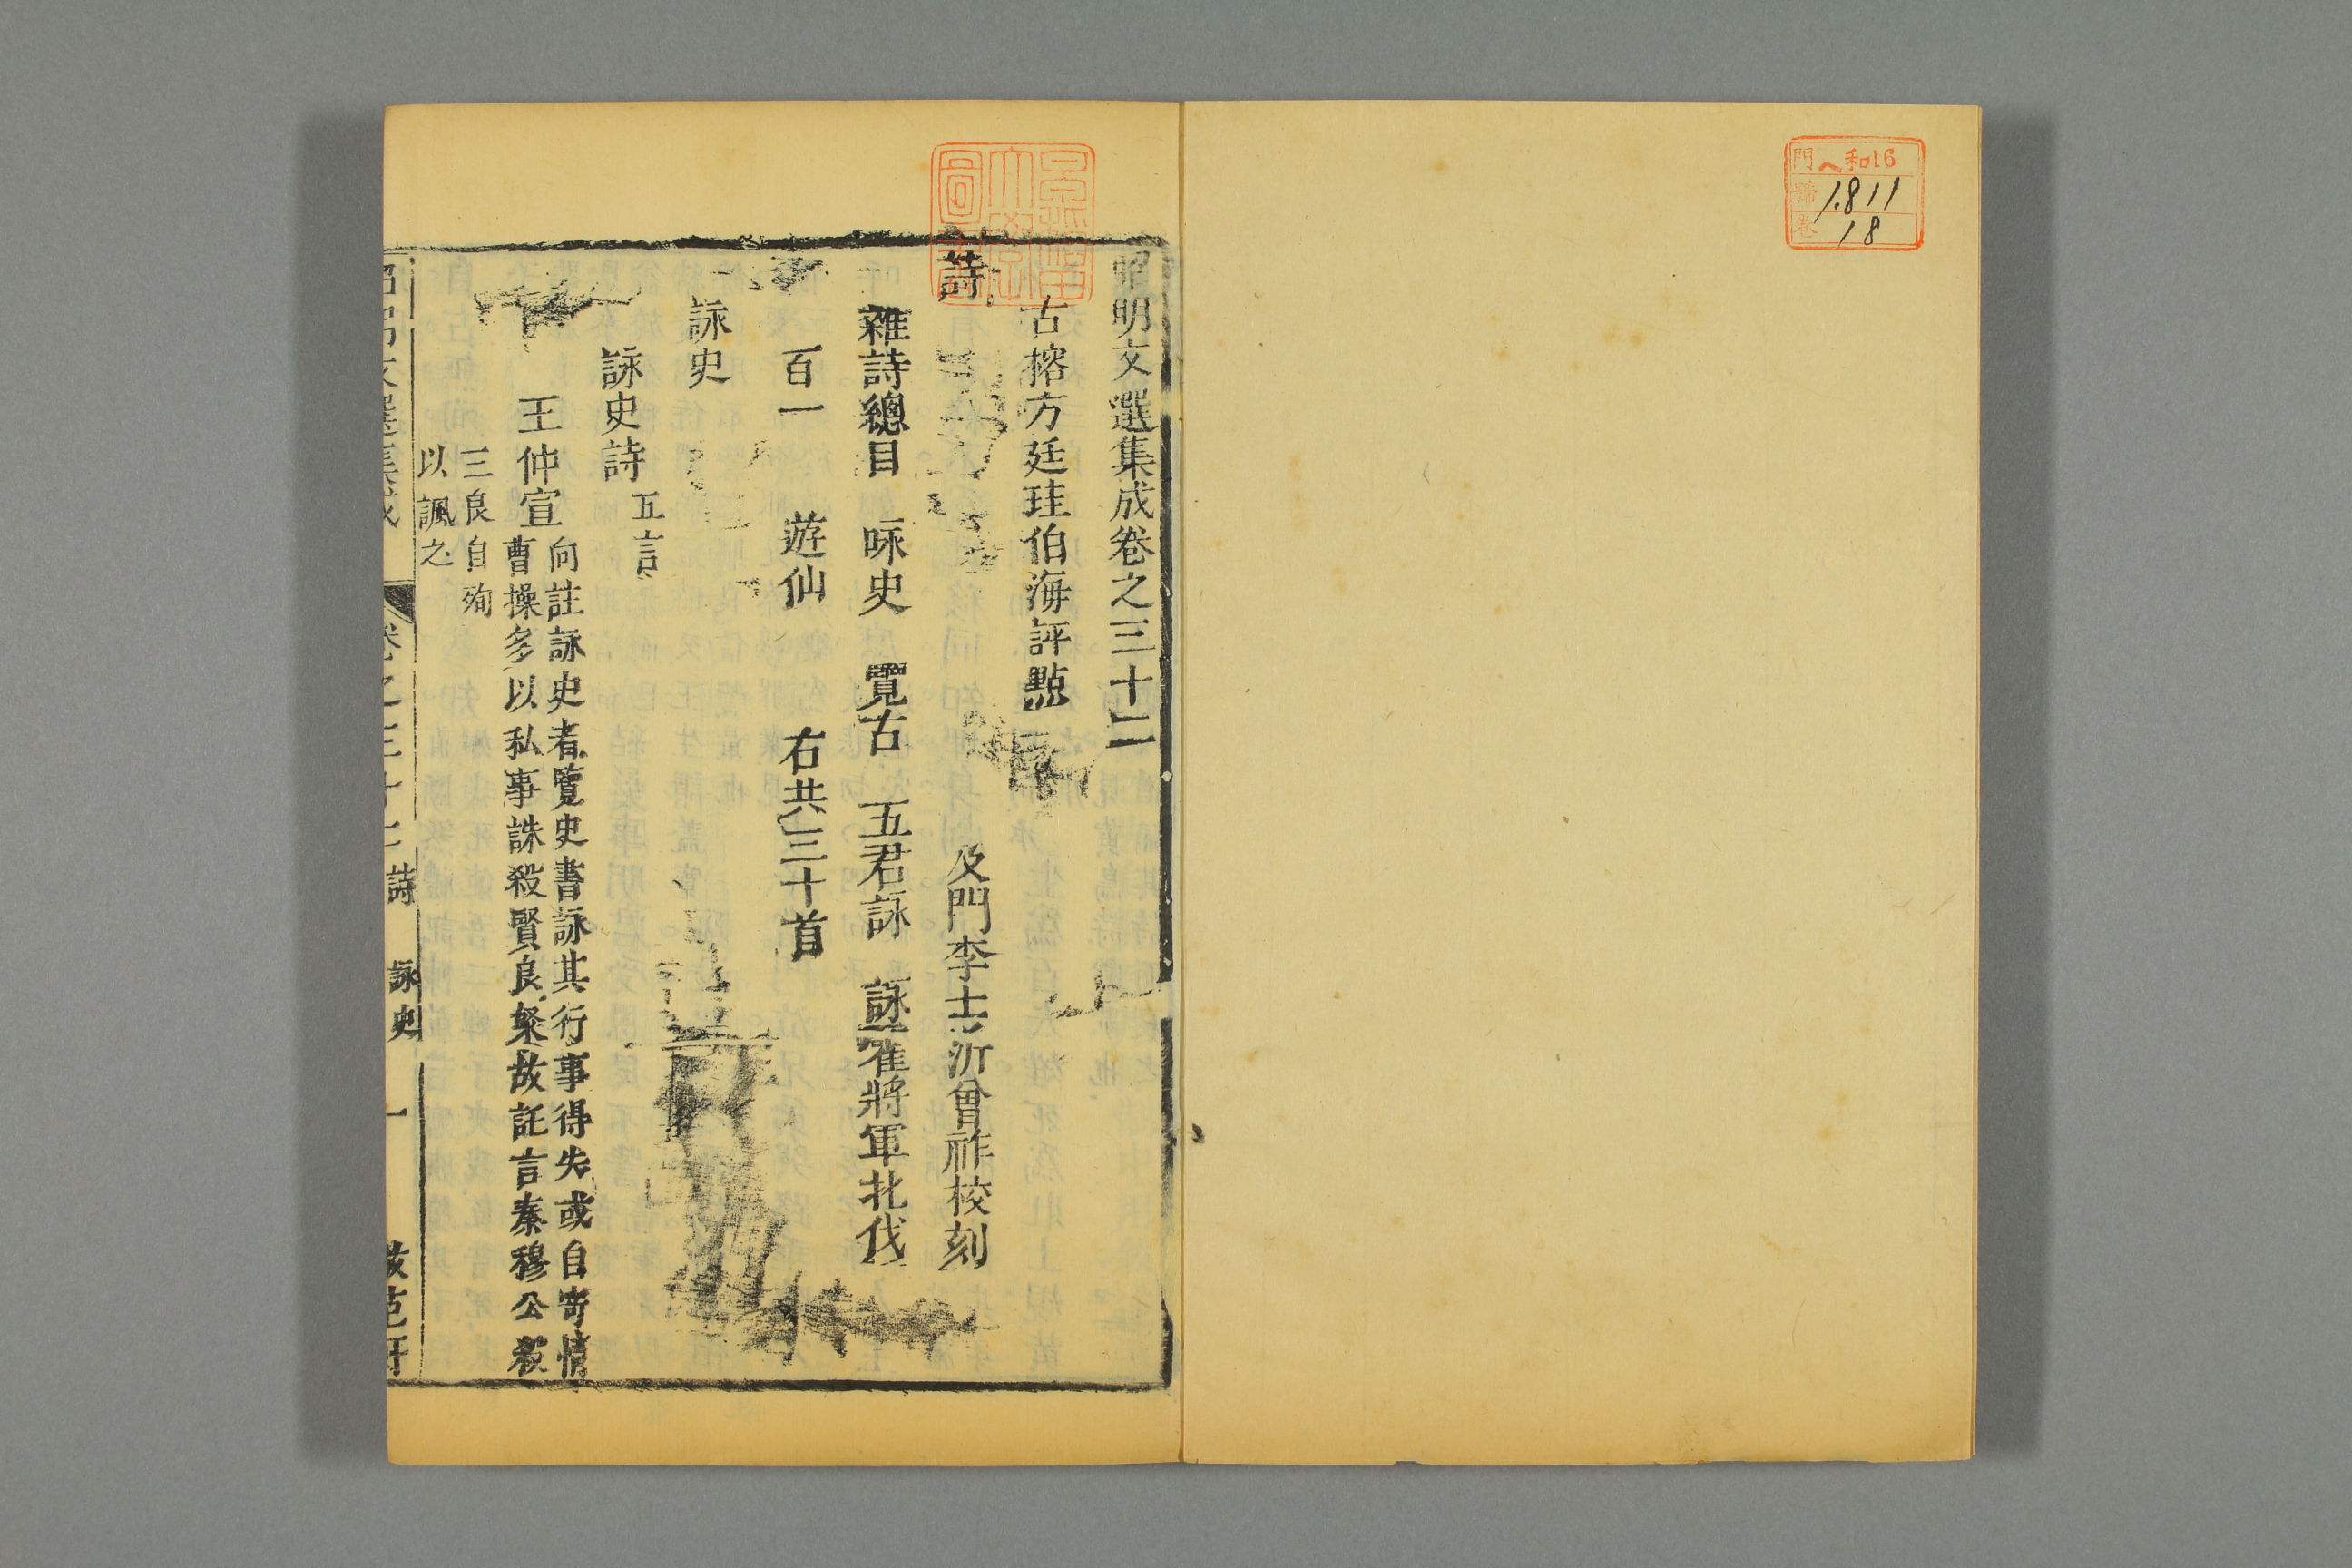 門 ヘ和16
號 1811
巻 18
昭明文選集成卷之三十二
古榕方廷珪伯海評點
及門李士沂曾祚校刻
詩
雜詩總目 咏史 覽古 五君詠 詠霍將軍北伐
百一 遊仙 右共三十首
詠史
詠史詩 五言
王仲宣 向註詠史者覽史書詠其行事得失或自寄情
曹操多以私事誅殺賢良粲故託言秦穆公殺
三良自殉
以諷之
昭明文選集成 卷之三十二 詩 詠史 一